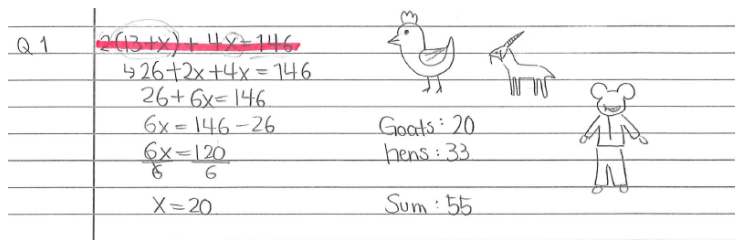 Q1 2(13+x) + 4x = 146
↳ 26+2x+4x = 146
26+6x=146
6x=146-26
6x=120
6 6
x=20
Goats: 20
hens: 33
Sum: 55